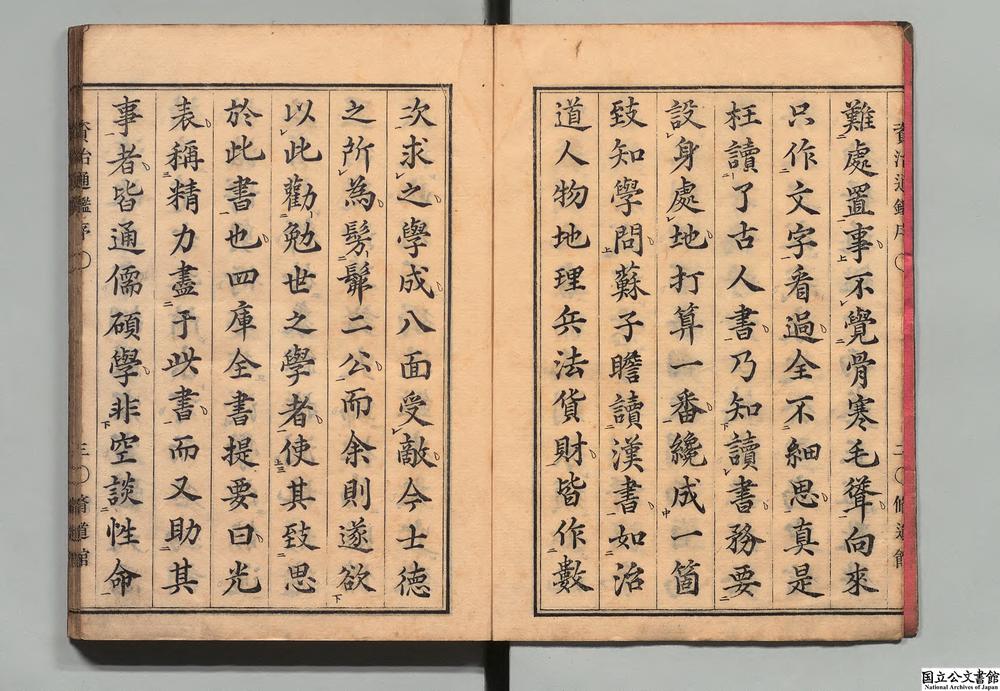 難處置事不覺骨寒毛聳向來
只作文字看過全不細思真是
枉讀了古人書乃知讀書務要
設身處地打算一番纔成一箇
致知學問蘇子瞻讀漢書如治
道人物地理兵法貨財皆作數
資治通鑑序 二 脩道館
次求之學成八面受敵今士德
之所為髣髴二公而余則遂欲
以此勸勉世之學者使其致思
於此書也四庫全書提要曰光
表稱精力盡于此書而又助其
事者皆通儒碩學非空談性命
資治通鑑序 三 脩道館
国立公文書館
National Archives of Japan